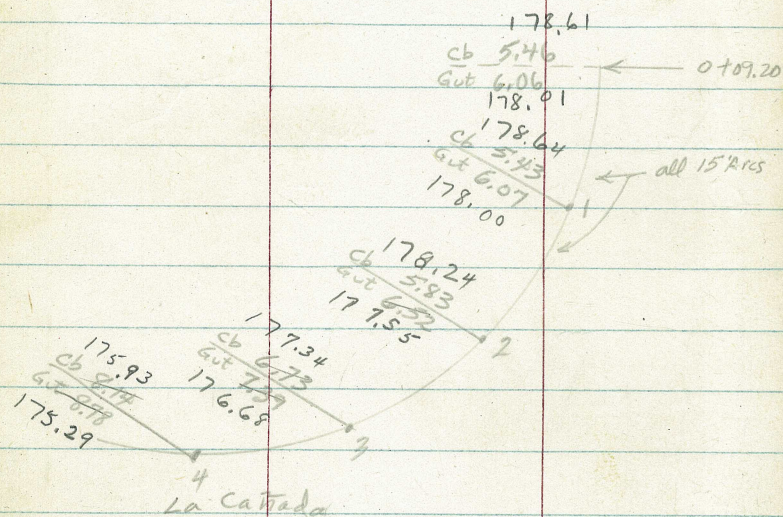 178.61
Cb 5.46
Gut 6.06
178.01
0+09.20
178.64
Cb 5.43
Gut 6.07
178.00
1
all 15' Arcs
178.24
Cb 5.83
Gut 6.52
177.55
2
177.34
Cb 6.73
Gut 7.39
176.68
3
175.93
Cb 8.14
Gut 8.78
175.29
4
La Cañada